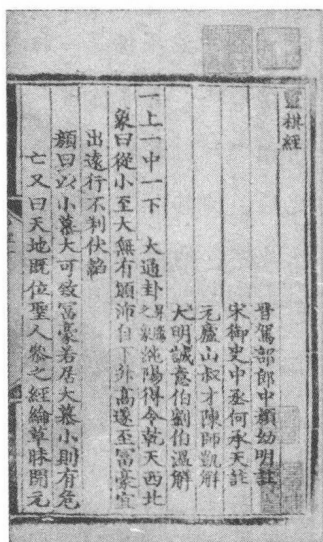 靈棋經
晉駕部郎中顏幼明註
宋御史中丞何承天註
元廬山叔才陳師凱解
大明誠意伯劉伯溫解
一上一中一下　大通卦昇騰之象純陽得令乾天西北
象曰從小至大無有顛沛自下升高遂至冨豪宜
出遠行不利伏
顏曰以小慕大可致冨豪若居大慕小則有危
亡又曰天地既位聖人叅之經綸草昧開元